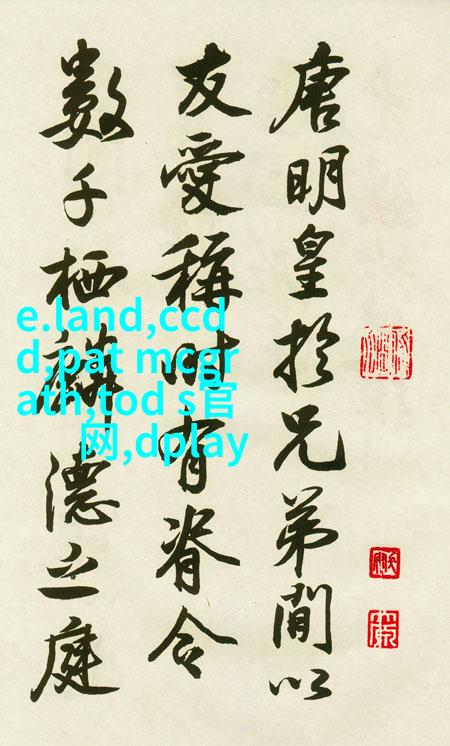 唐明皇於兄弟間以
友愛稱時有脊令
數千栖麟德之庭
e.land,ccd
d,pat mcgr
ath,tod s官
网,dplay